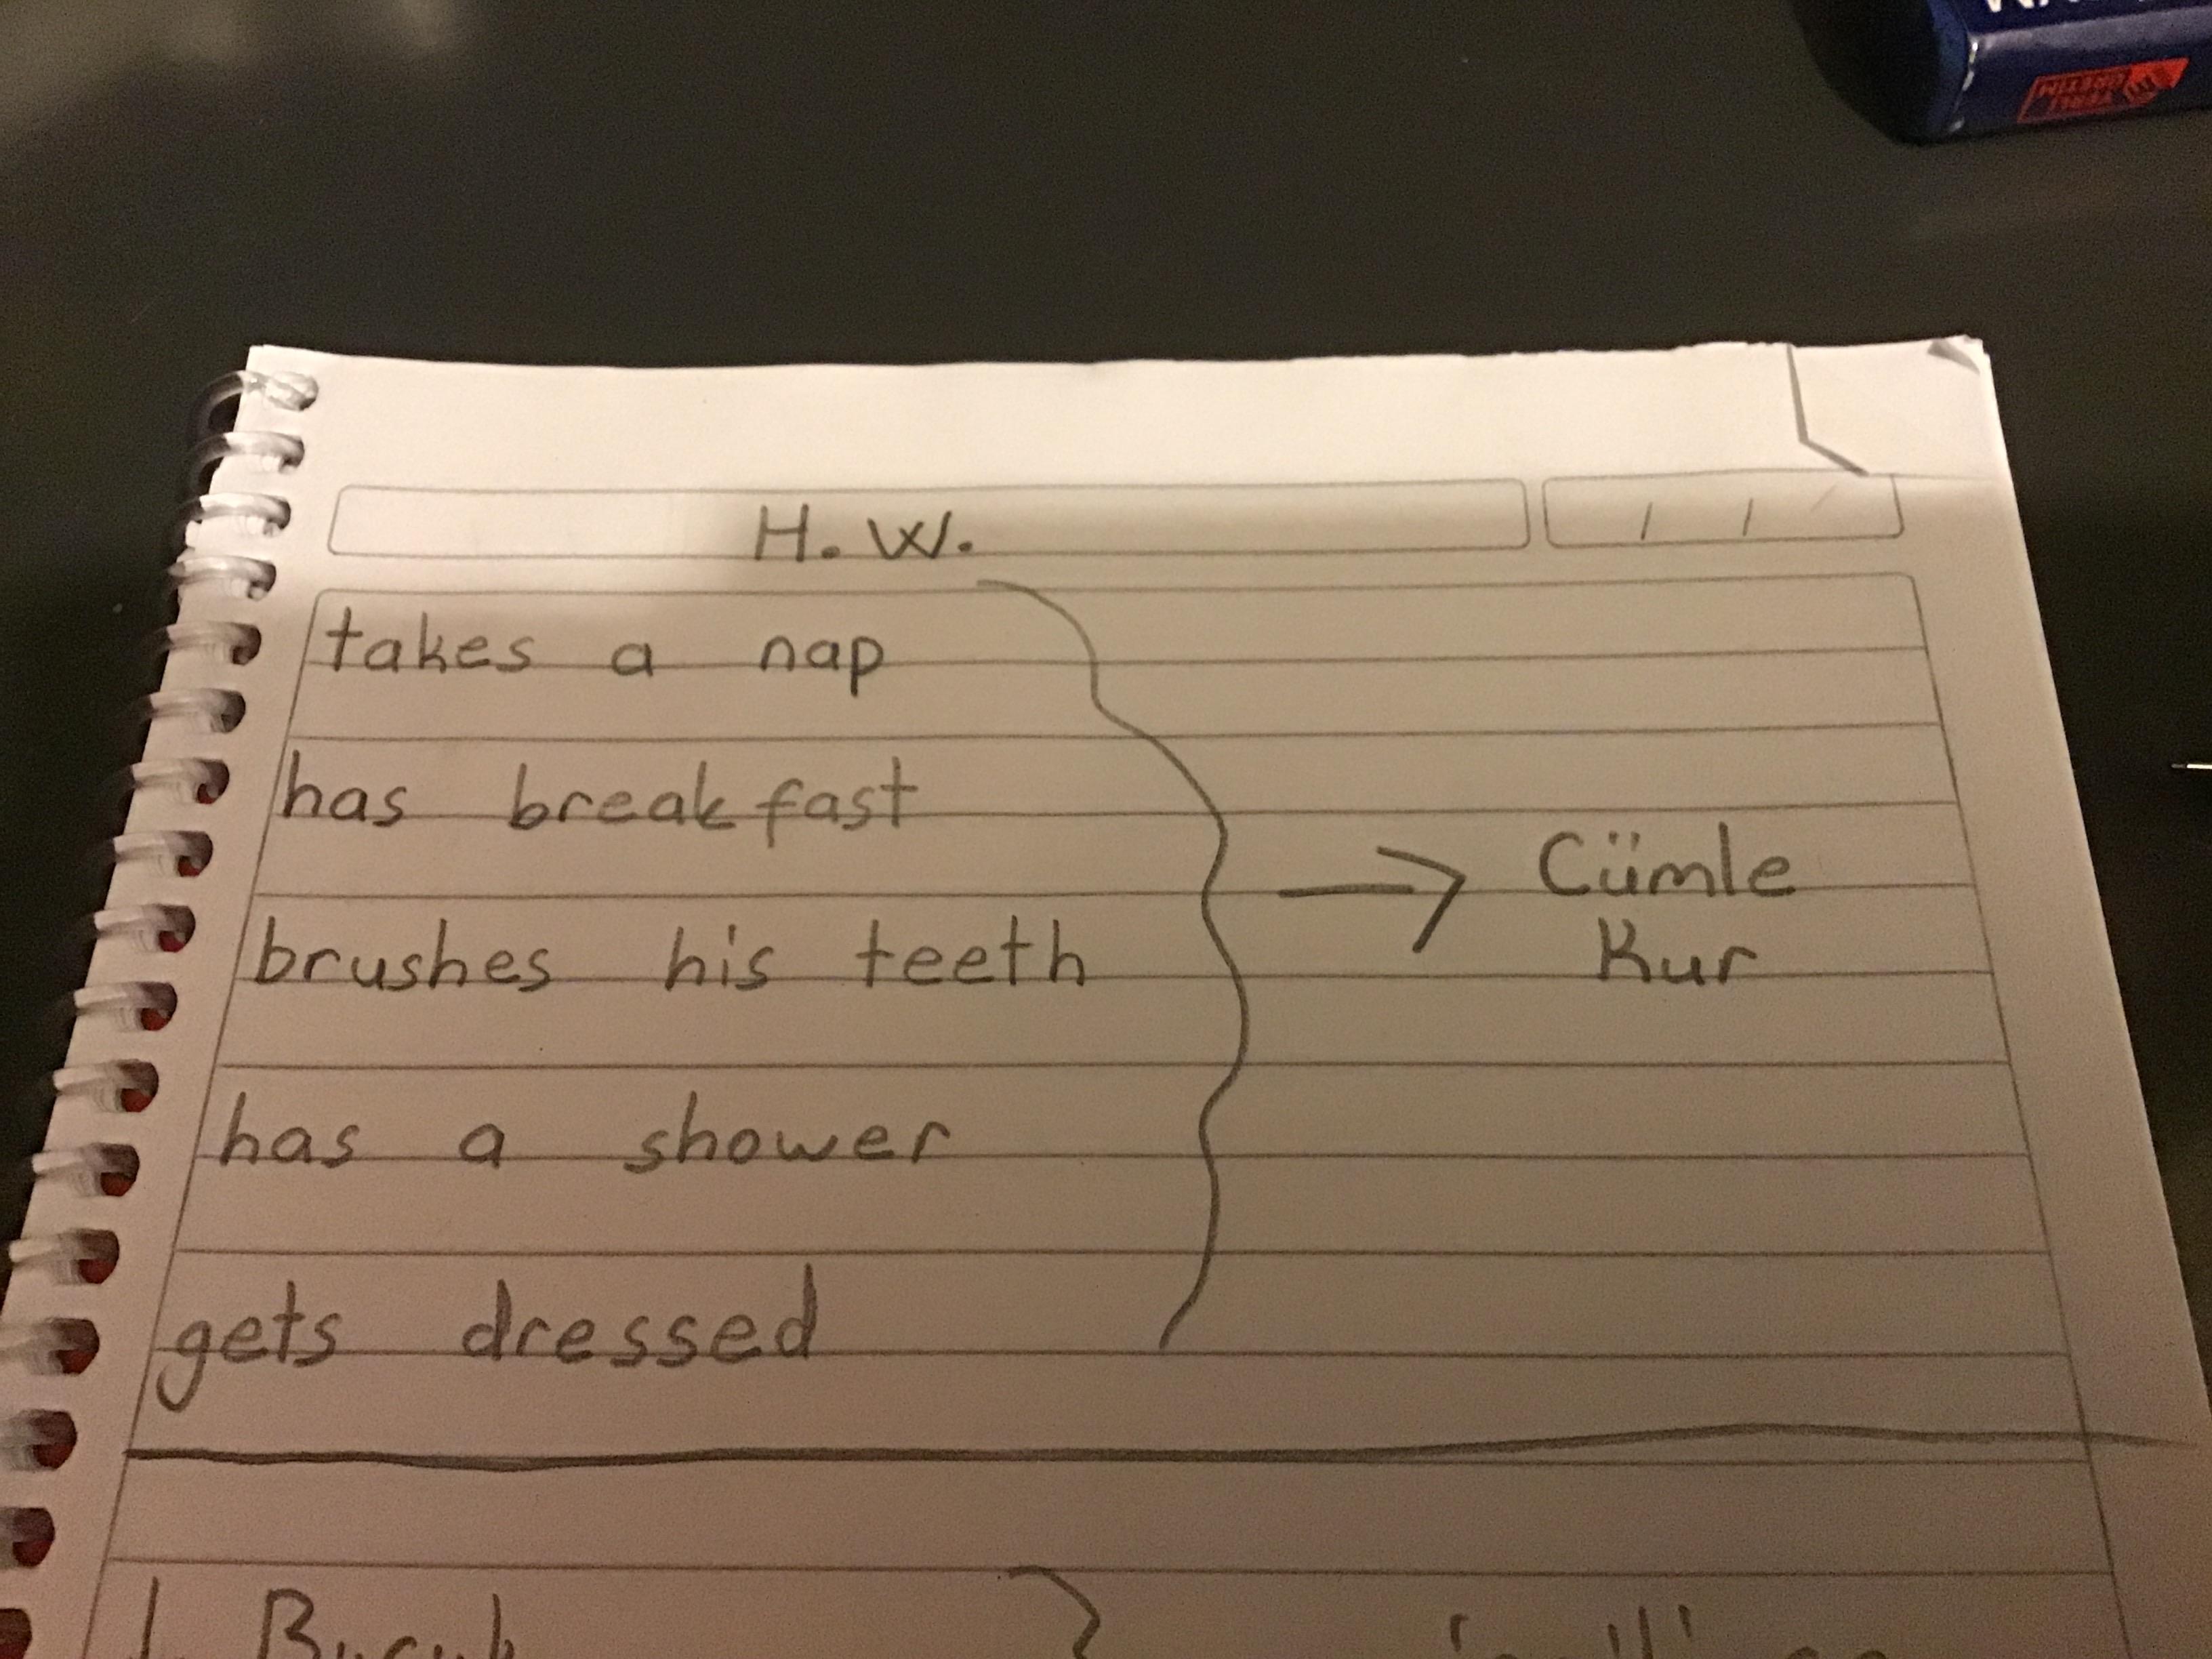 H. W.
takes a nap
has breakfast
brushes his teeth
has a shower
gets dressed
→ Cümle
Kur
YERLİ
ÜRETİM